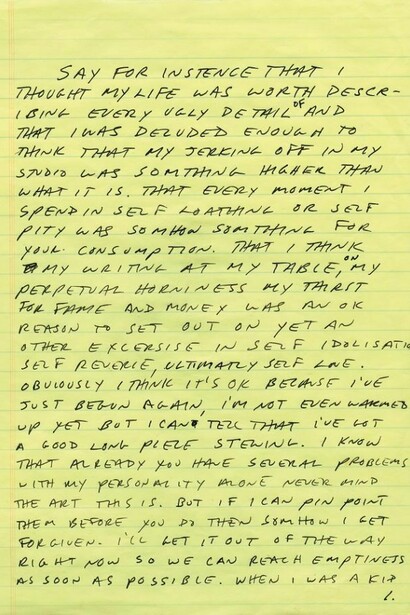 SAY FOR INSTENCE THAT I
THOUGHT MY LIFE WAS WORTH DESCR-
IBING EVERY UGLY DETAIL OF AND
THAT I WAS DELUDED ENOUGH TO
THINK THAT MY JERKING OFF IN MY
STUDIO WAS SOMTHING HIGHER THAN
WHAT IT IS. THAT EVERY MOMENT I
SPEND IN SELF LOATHING OR SELF
PITY WAS SOMHOW SOMTHING FOR
YOUR CONSUMPTION. THAT I THINK
MY WRITING AT MY TABLE, ON MY
PERPETUAL HORNINESS MY THIRST
FOR FAME AND MONEY WAS AN OK
REASON TO SET OUT ON YET AN
OTHER EXCERSISE IN SELF IDOLISATIO
SELF REVERIE, ULTIMATLY SELF LOVE.
OBVIOUSLY I THINK IT'S OK BECAUSE I'VE
JUST BEGUN AGAIN, I'M NOT EVEN WARMED
UP YET BUT I CAN TELL THAT I'VE GOT
A GOOD LONG PIECE STEWING. I KNOW
THAT ALREADY YOU HAVE SEVERAL PROBLEMS
WITH MY PERSONALITY ALONE NEVER MIND
THE ART THIS IS. BUT IF I CAN PIN POINT
THEM BEFORE YOU DO THEN SOMHOW I GET
FORGIVEN. I'LL GET IT OUT OF THE WAY
RIGHT NOW SO WE CAN REACH EMPTINESS
AS SOON AS POSSIBLE. WHEN I WAS A KID
1.